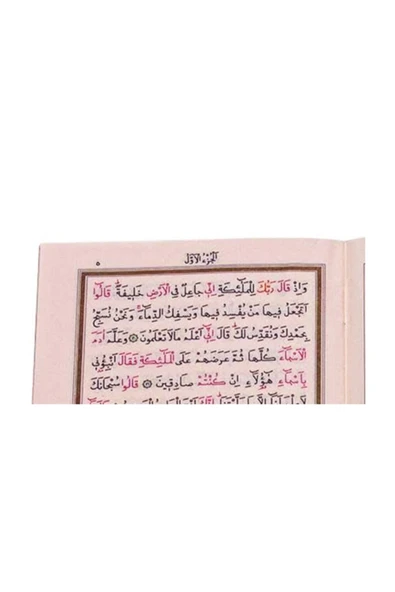 ٥
الجزء الأول
وَإِذْ قَالَ رَبُّكَ لِلْمَلٰۤئِكَةِ إِنِّي جَاعِلٌ فِي الْأَرْضِ خَلِيفَةً قَالُوا
أَتَجْعَلُ فِيهَا مَنْ يُفْسِدُ فِيهَا وَيَسْفِكُ الدِّمَاءَ وَنَحْنُ نُسَبِّحُ
بِحَمْدِكَ وَنُقَدِّسُ لَكَ قَالَ إِنِّي أَعْلَمُ مَا لَا تَعْلَمُونَ وَعَلَّمَ آدَمَ
الْأَسْمَاءَ كُلَّهَا ثُمَّ عَرَضَهُمْ عَلَى الْمَلٰۤئِكَةِ فَقَالَ أَنْبِئُونِي
بِأَسْمَاءِ هٰؤُلَاءِ إِنْ كُنْتُمْ صَادِقِينَ قَالُوا سُبْحَانَكَ